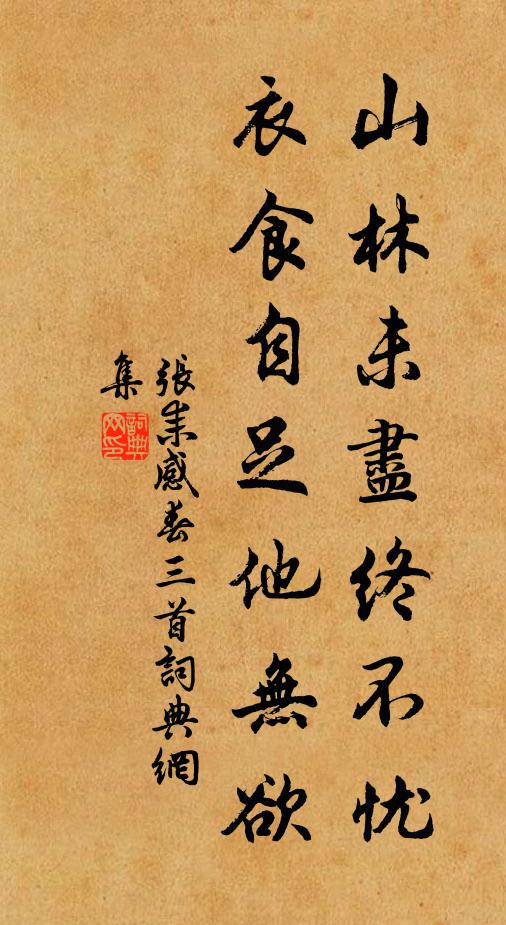 山林未盡終不忧
衣食自足他無欲
張耒感春三首詞典網
集
詞典
网印